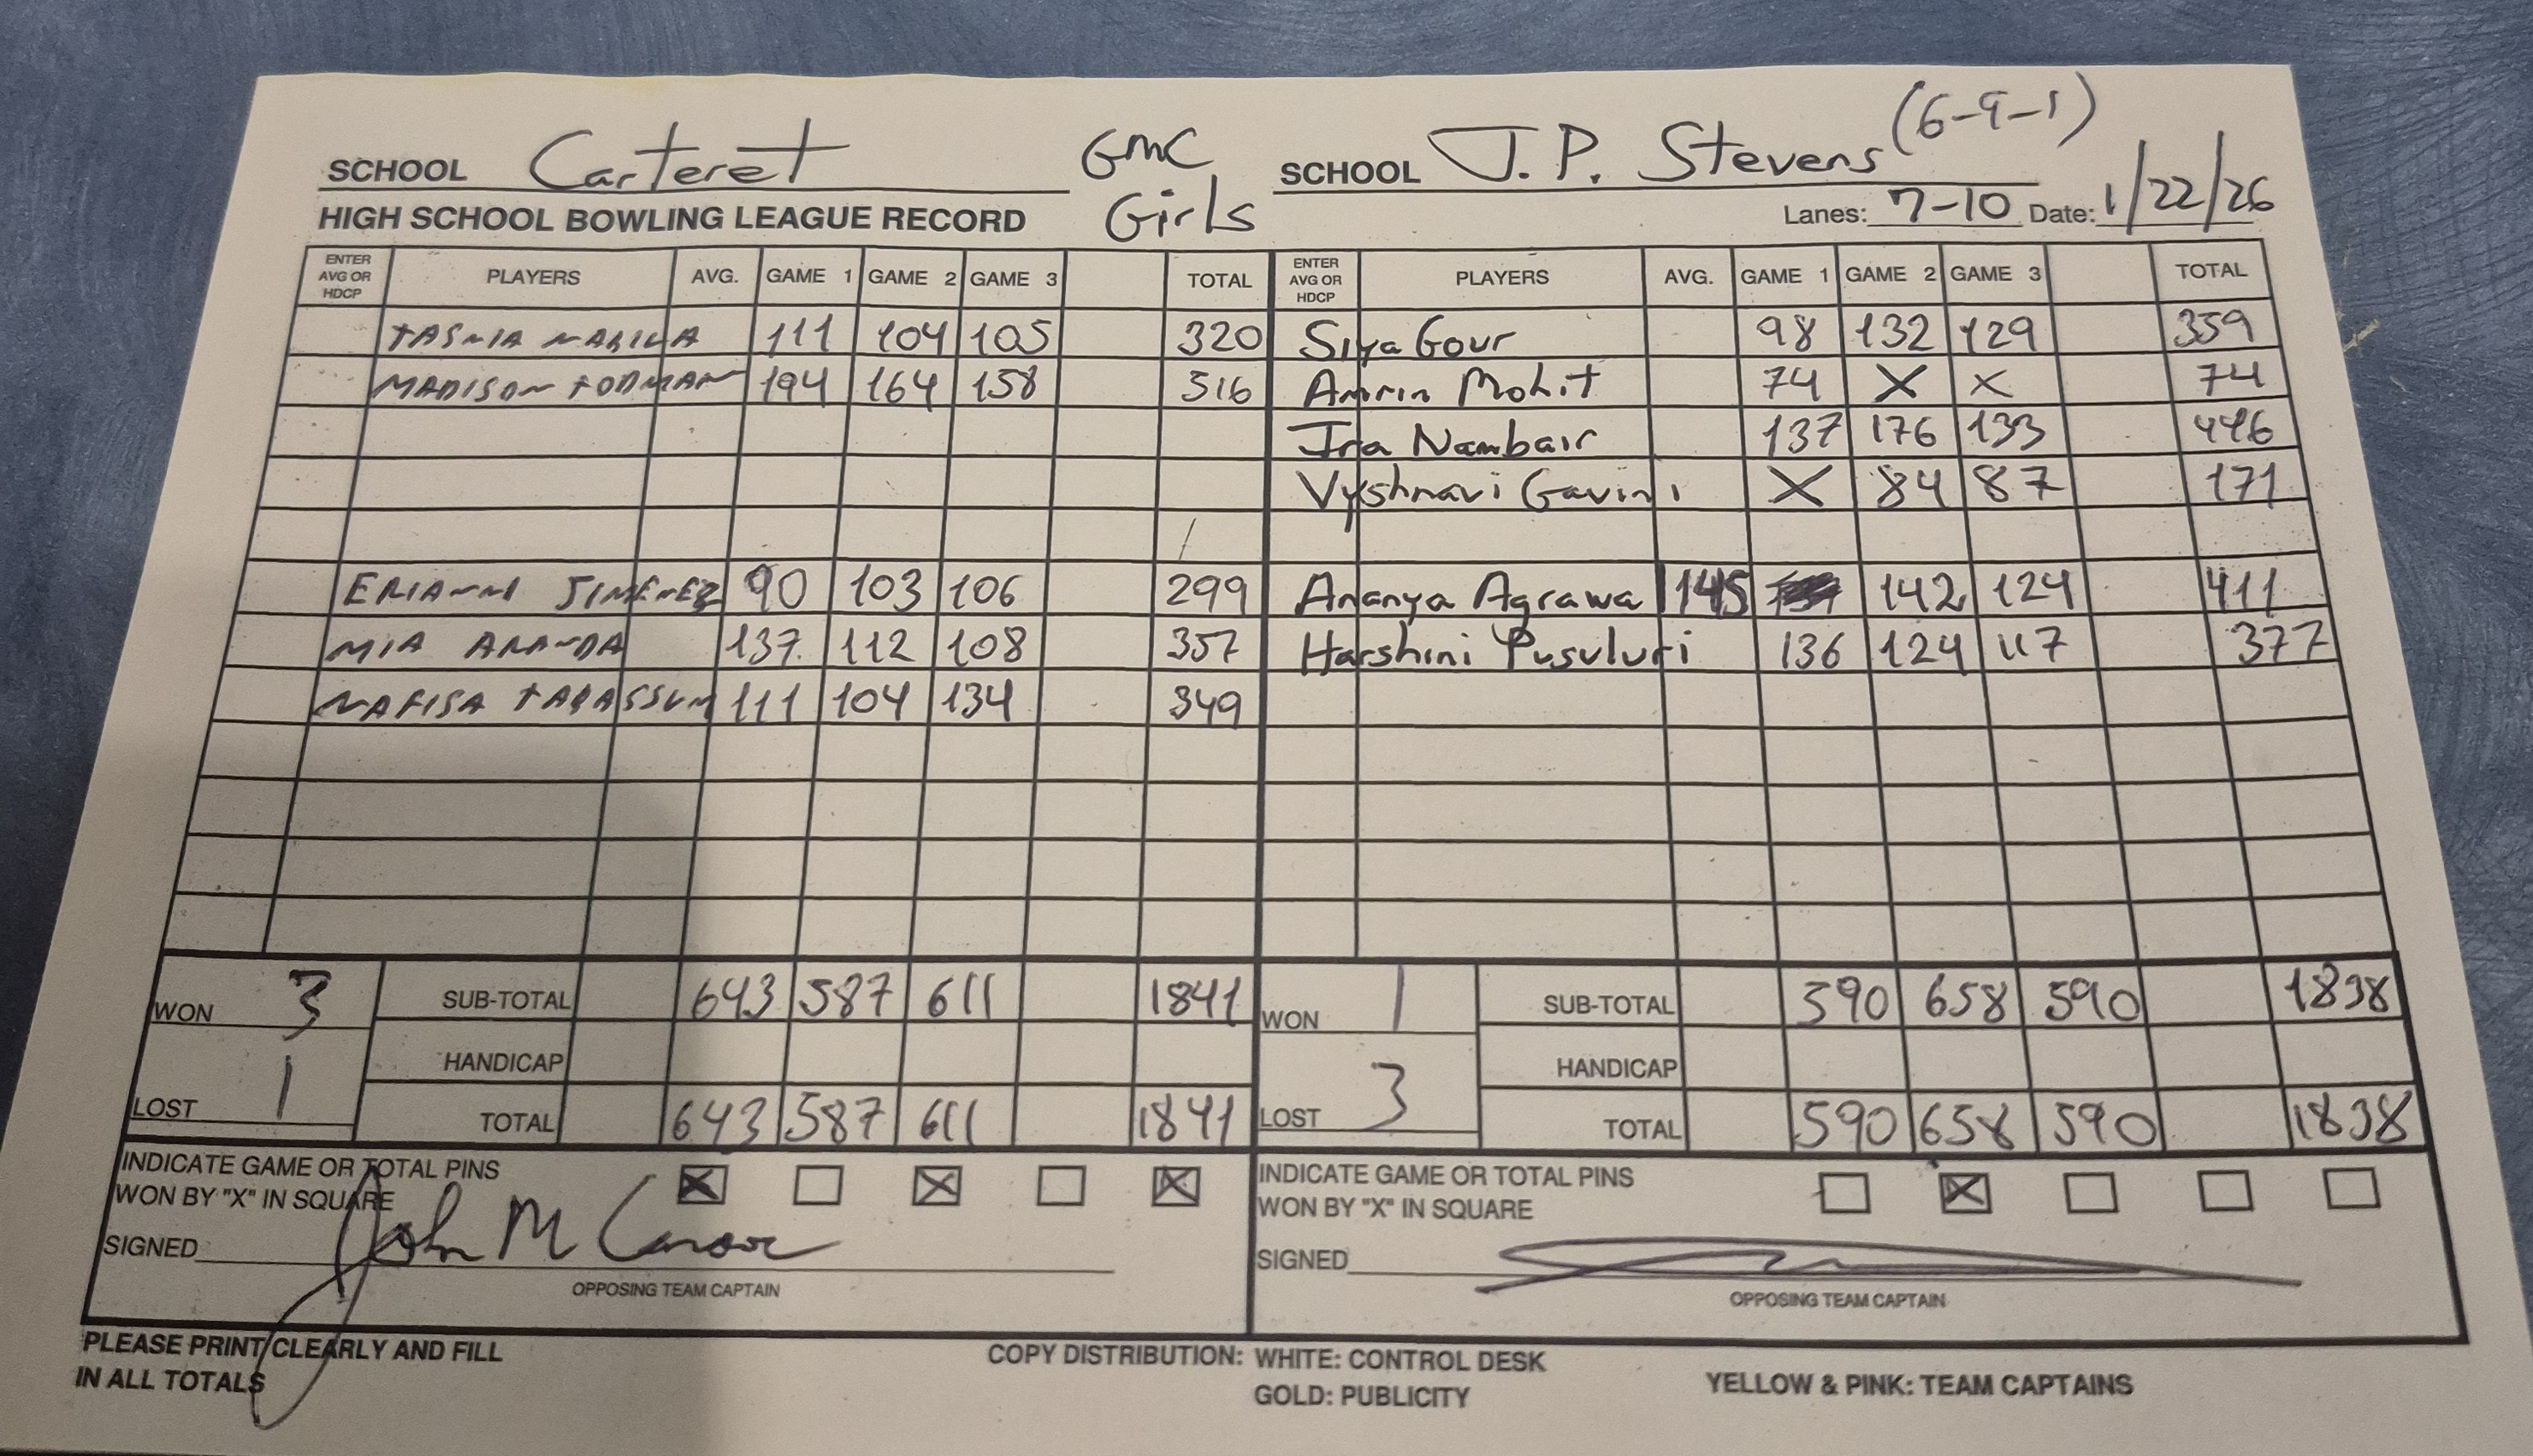 SCHOOL Carteret GMC SCHOOL J. P. Stevens (6-9-1)
HIGH SCHOOL BOWLING LEAGUE RECORD Girls Lanes: 7-10 Date: 1/22/26
ENTER AVG OR HDCP PLAYERS AVG. GAME 1 GAME 2 GAME 3 TOTAL ENTER AVG OR HDCP PLAYERS AVG. GAME 1 GAME 2 GAME 3 TOTAL
TASNIA NABILA 111 104 105 320 Siya Gour 98 132 129 359
MADISON FODMAN 194 164 158 516 Amrin Mohit 74 X X 74
Ira Nambair 137 176 133 446
Vyshnavi Gavini X 84 87 171
ERIANNI JIMENEZ 90 103 106 299 Ananya Agrawal 145 142 124 411
MIA ARANDA 137 112 108 357 Harshini Pusuluri 136 124 117 377
NAFISA TABASSUM 111 104 134 349
WON 3 SUB-TOTAL 643 587 611 1841 WON 1 SUB-TOTAL 590 658 590 1838
HANDICAP HANDICAP
LOST 1 TOTAL 643 587 611 1841 LOST 3 TOTAL 590 658 590 1838
INDICATE GAME OR TOTAL PINS INDICATE GAME OR TOTAL PINS
WON BY "X" IN SQUARE X X X WON BY "X" IN SQUARE X
SIGNED John M SIGNED
OPPOSING TEAM CAPTAIN OPPOSING TEAM CAPTAIN
PLEASE PRINT CLEARLY AND FILL COPY DISTRIBUTION: WHITE: CONTROL DESK
IN ALL TOTALS GOLD: PUBLICITY YELLOW & PINK: TEAM CAPTAINS